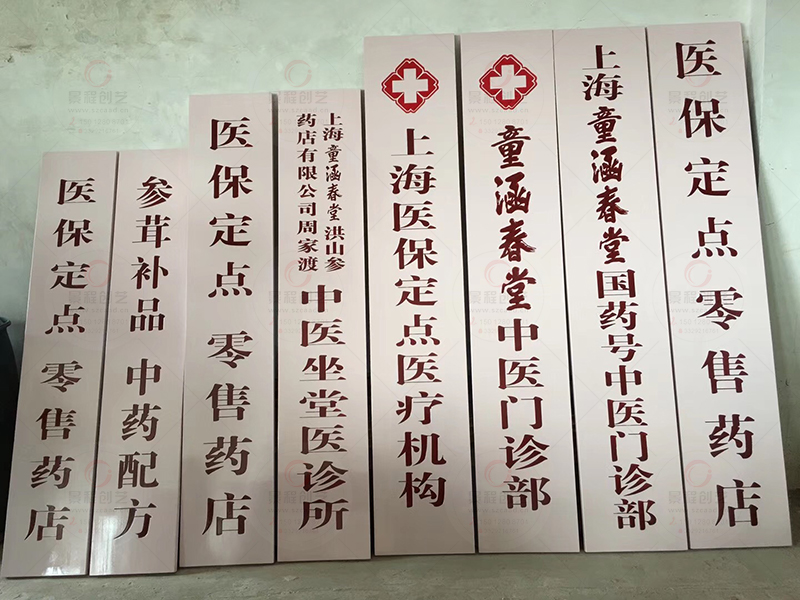 医保定点 零售药店
参茸补品 中药配方
医保定点 零售药店
上海童涵春堂洪山参
药店有限公司周家渡
中医坐堂医诊所
上海医保定点医疗机构
童涵春堂中医门诊部
上海童涵春堂国药号中医门诊部
医保定点零售药店
景程创艺